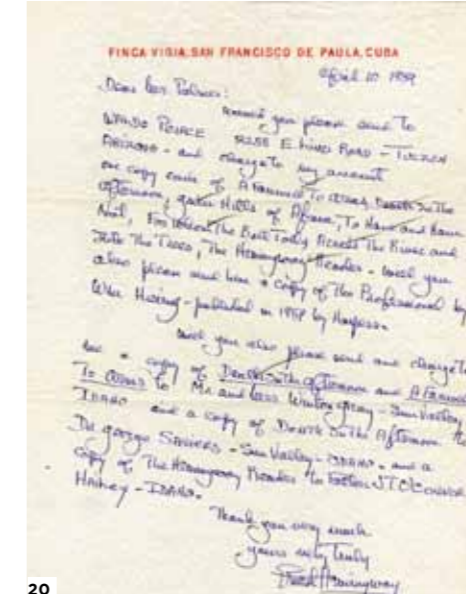 FINCA VIGIA, SAN FRANCISCO DE PAULA, CUBA
April 10 1959
Dear Palmer:
would you please send to
WALDO PEIRCE E. Lind Road - TUCSON
ARIZONA - and charge to my account
one copy each of A Farewell To Arms, Death In the
Afternoon, Green Hills of Africa, To Have and Have
Not, For Whom The Bell Tolls, Across The River and
Into The Trees, The Hemingway Reader - will you
also please send him a copy of The Professional by
published in 1958 by Harpers.
will you also please send and charge to
me a copy of Death in the Afternoon and A Farewell
To Arms to Mr and Mrs Gray - Sun Valley
IDAHO and a copy of Death In the Afternoon to
Dr George SAVIERS - Sun Valley - IDAHO - and a
copy of The Hemingway Reader to Father O'CONNOR
HAILEY - IDAHO.
Thank you very much
yours very truly
Ernest Hemingway
20